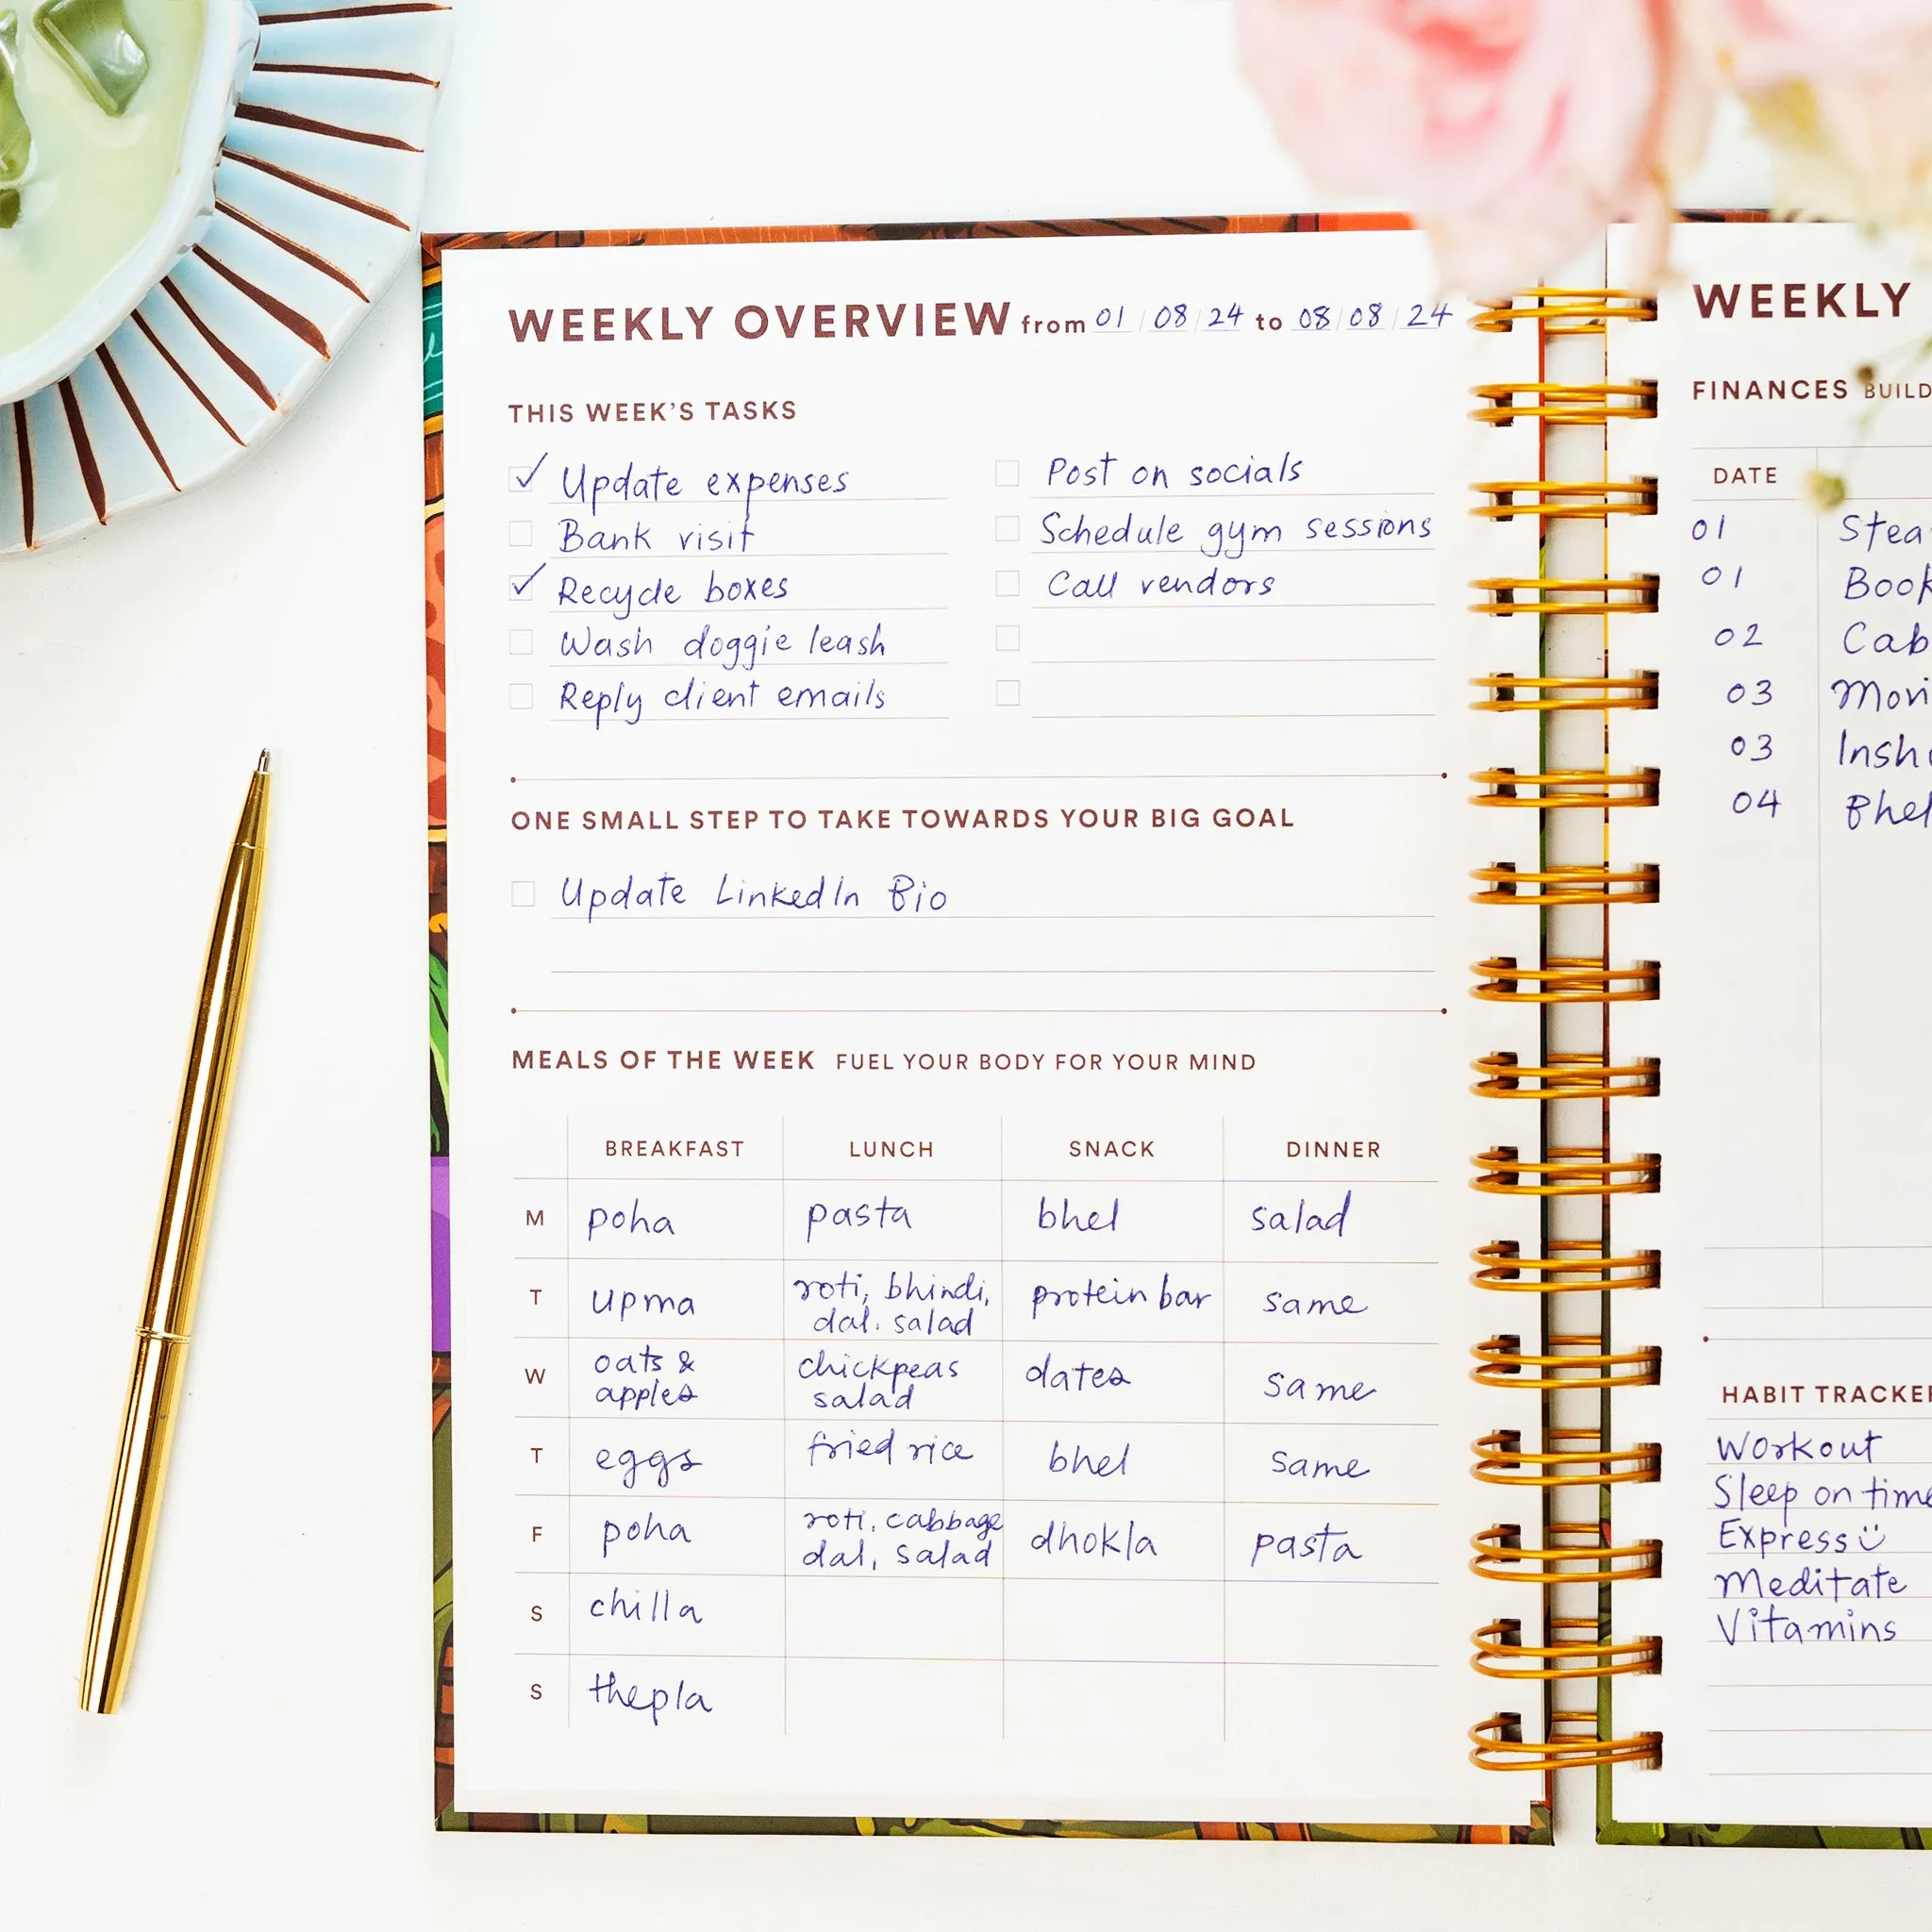 WEEKLY OVERVIEW from 01 / 08 / 24 to 08 / 08 / 24
THIS WEEK'S TASKS
Update expenses
Bank visit
Recycle boxes
Wash doggie leash
Reply client emails
Post on socials
Schedule gym sessions
Call vendors
ONE SMALL STEP TO TAKE TOWARDS YOUR BIG GOAL
Update LinkedIn Bio
MEALS OF THE WEEK FUEL YOUR BODY FOR YOUR MIND
BREAKFAST LUNCH SNACK DINNER
M poha pasta bhel salad
T upma roti, bhindi, dal. salad protein bar same
W oats & apples chickpeas salad dates same
T eggs fried rice bhel same
F poha roti, cabbage dal, salad dhokla pasta
S chilla
S thepla
WEEKLY
FINANCES BUILD
DATE
01
01 Book
02 Cab
03
03
04
HABIT TRACKER
Workout
Sleep on time
Express
Meditate
Vitamins